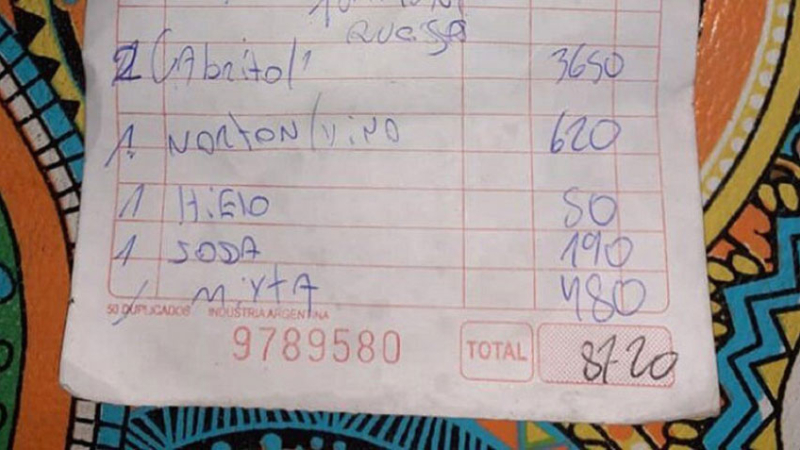 QUESO
2 CAbrito/ 3650
1 NORTON/VINO 620
1 HiElO 50
1 SODA 190
1 MixTA 480
50 DUPLICADOS INDUSTRIA ARGENTINA
9789580 TOTAL 8720